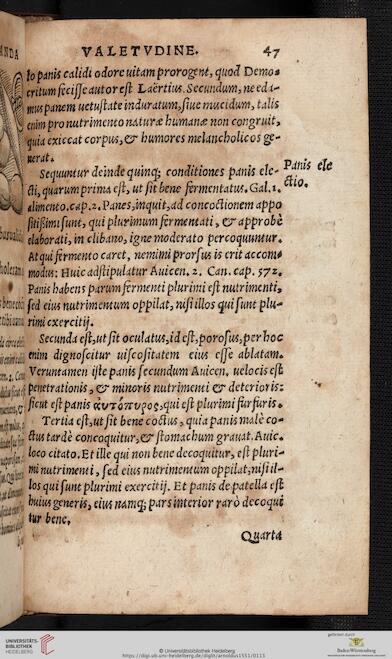 VALETVDINE. 47
lo panis calidi odore uitam prorogent, quod Demo=
critum fecisse autor est Laërtius. Secundum, ne eda=
mus panem uetustate induratum, siue mucidum, talis
enim pro nutrimento naturæ humanæ non congruit,
quia exiccat corpus, & humores melancholicos ge=
nerat.
Sequuntur deinde quinq; conditiones panis ele=
cti, quarum prima est, ut sit bene fermentatus. Gal. 1.
alimento. cap. 2. Panes, inquit, ad concoctionem appo
sitißimi sunt, qui plurimum fermentati, & approbè
elaborati, in clibano, igne moderato percoquuntur.
At qui fermento caret, nemini prorsus is erit accom=
modus: Huic adstipulatur Auicen. 2. Can. cap. 572.
Panis habens parum fermenti plurimi est nutrimenti,
sed eius nutrimentum oppilat, nisi illos qui sunt plu=
rimi exercitij.
Secunda est, ut sit oculatus, id est, porosus, per hoc
enim dignoscitur uiscositatem eius esse ablatam.
Veruntamen iste panis secundum Auicen. uelocis est
penetrationis, & minoris nutrimenti & deterioris:
sicut est panis αυτόπυρος, qui est plurimi furfuris.
Tertia est, ut sit bene coctus, quia panis malè co=
ctus tardè concoquitur, & stomachum grauat. Auic.
loco citato. Et ille qui non bene decoquitur, est pluri=
mi nutrimenti, sed eius nutrimentum oppilat, nisi il=
los qui sunt plurimi exercitij. Et panis de patella est
huius generis, eius namq; pars interior rarò decoqui
tur bene.
Quarta
Panis ele
ctio.
UNIVERSITÄTS-
BIBLIOTHEK
HEIDELBERG
© Universitätsbibliothek Heidelberg
https://digi.ub.uni-heidelberg.de/diglit/arnoldus1551/0113
gefördert durch
Baden-Württemberg